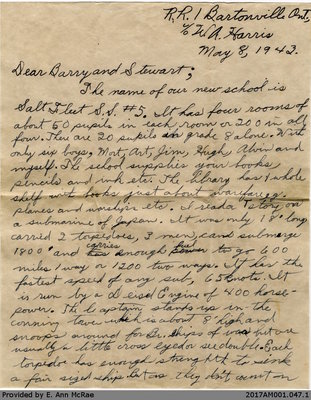 R.R.1 Bartonville Ont,
℅ W.A. Harris
May 8, 1942.
Dear Barry and Stewart;
The name of our new school is
Salt Fleet S.S. #5. It has four rooms of
about 50 pupils in each room or 200 in all
four. There are 20 pupils in grade 8 alone. With
only six boys, Mort, Art, Jim, Hugh, Alvin and
myself. The school supplies your books,
pencils and ink etc. The library has 1 whole
shelf with books just about warfare e.g.
planes and warships etc. I read a story on
a submarine of Japan. It was only 18' long
carried 2 torpedoes, 3 men, cand submerge
1800' and carries enough fuel to go 600
miles 1 way or 1200 two ways. It has the
fastest speed of any sub, 65 knots. It
is run by a Diesel Engine of 400 horse-
power. The Captain stands up in the
conning tower which is about 8' high and
snoops around for Br. ships of war but are
usually a little cross eyed or see double. Each
torpedo has enough strenght to sink
a fair sized ship but as they don't count on
Provided by E. Ann McRae
2017AM001.047.1